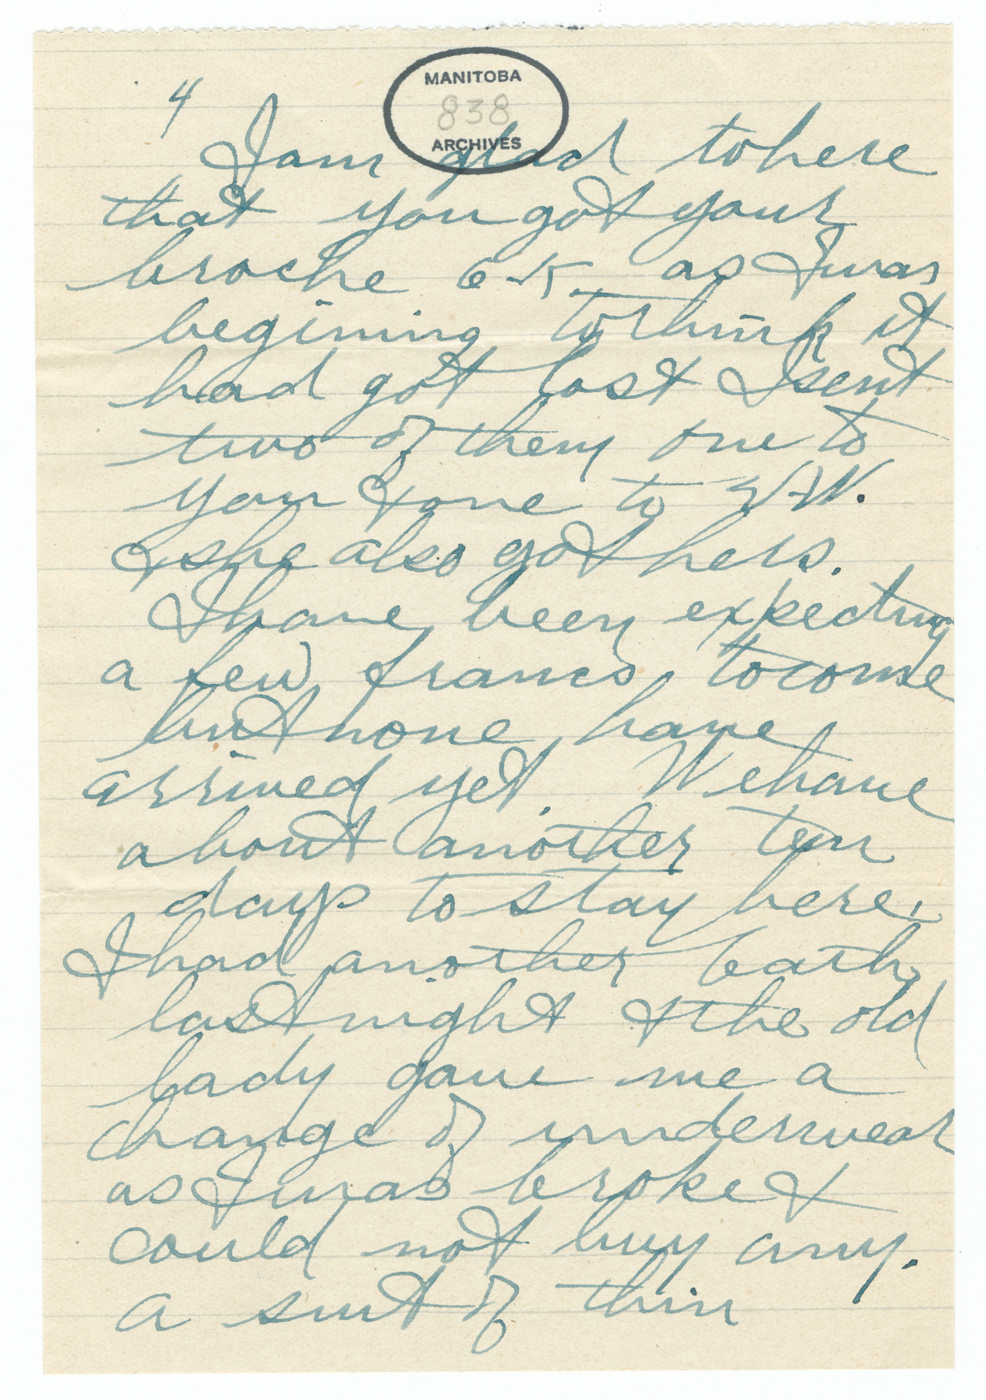 MANITOBA
838
ARCHIVES
4
I am glad to here
that you got your
broche as I was
begining to think it
had got lost I sent
two of them one to
you & one to
& she also got hers.
I have been expecting
a few francs to come
but none have
arrived yet. We have
about another ten
days to stay here.
I had another bath
last night & the old
lady gave me a
change of underwear
as I was broke &
could not buy any.
a suit of thin